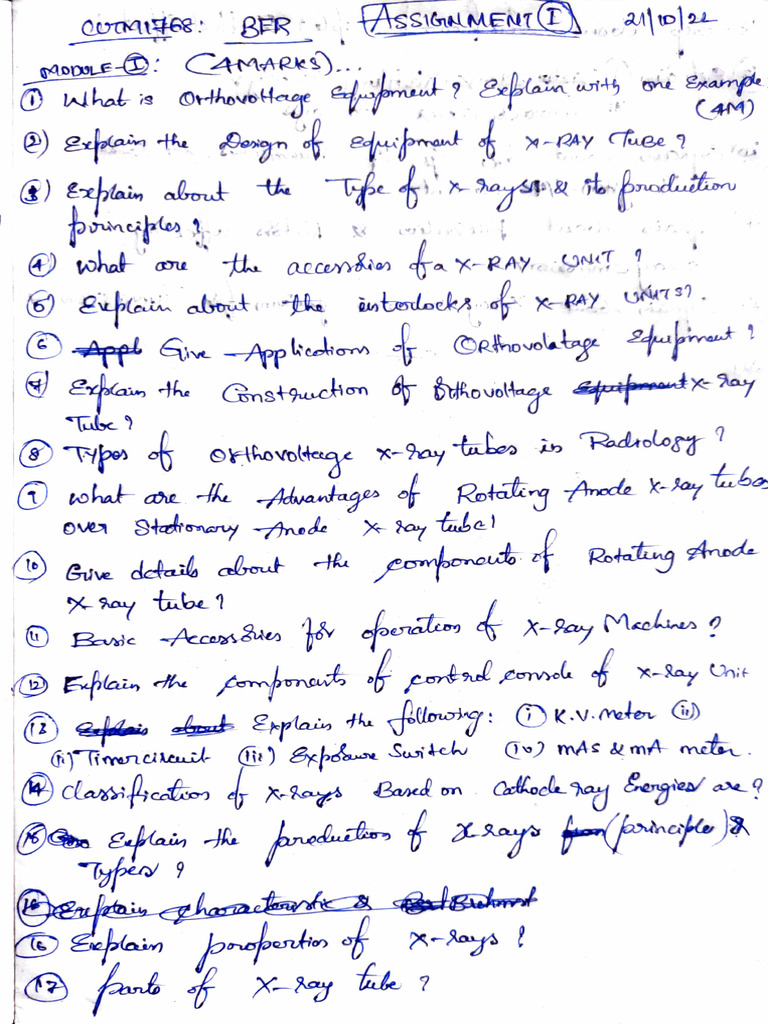 CUTM1768: BER ASSIGNMENT (I) 21/10/22
MODULE-(I): (4MARKS)...
(1) What is Orthovoltage Equipment? Explain with one Example
(4M)
(2) Explain the Design of equipment of X-RAY TUBE?
(3) Explain about the Type of x-rays & its production
principles?
(4) What are the accessories of a X-RAY UNIT?
(5) Explain about the interlocks of X-RAY UNITS?
(6) Appl Give Applications of Orthovolatage Equipment?
(7) Explain the Construction of Orthovoltage Equipment x-ray
Tube?
(8) Types of Orthovoltage x-ray tubes in Radiology?
(9) What are the Advantages of Rotating Anode x-ray tubes
over Stationary Anode x ray tube!
(10) Give details about the components of Rotating Anode
X-ray tube?
(11) Basic Accessories for operation of X-ray Machines?
(12) Explain the components of control console of x-ray Unit
(13) Explain about Explain the following: (i) K.V. meter (ii)
(ii) Timer circuit (iii) Exposure Switch (iv) mAs & mA meter.
(14) Classification of x-rays Based on Cathode ray Energies are?
(15) Explain the production of X rays (principles) &
Types?
Explain characteristic &
(16) Explain properties of X-rays?
(17) parts of X-ray tube?